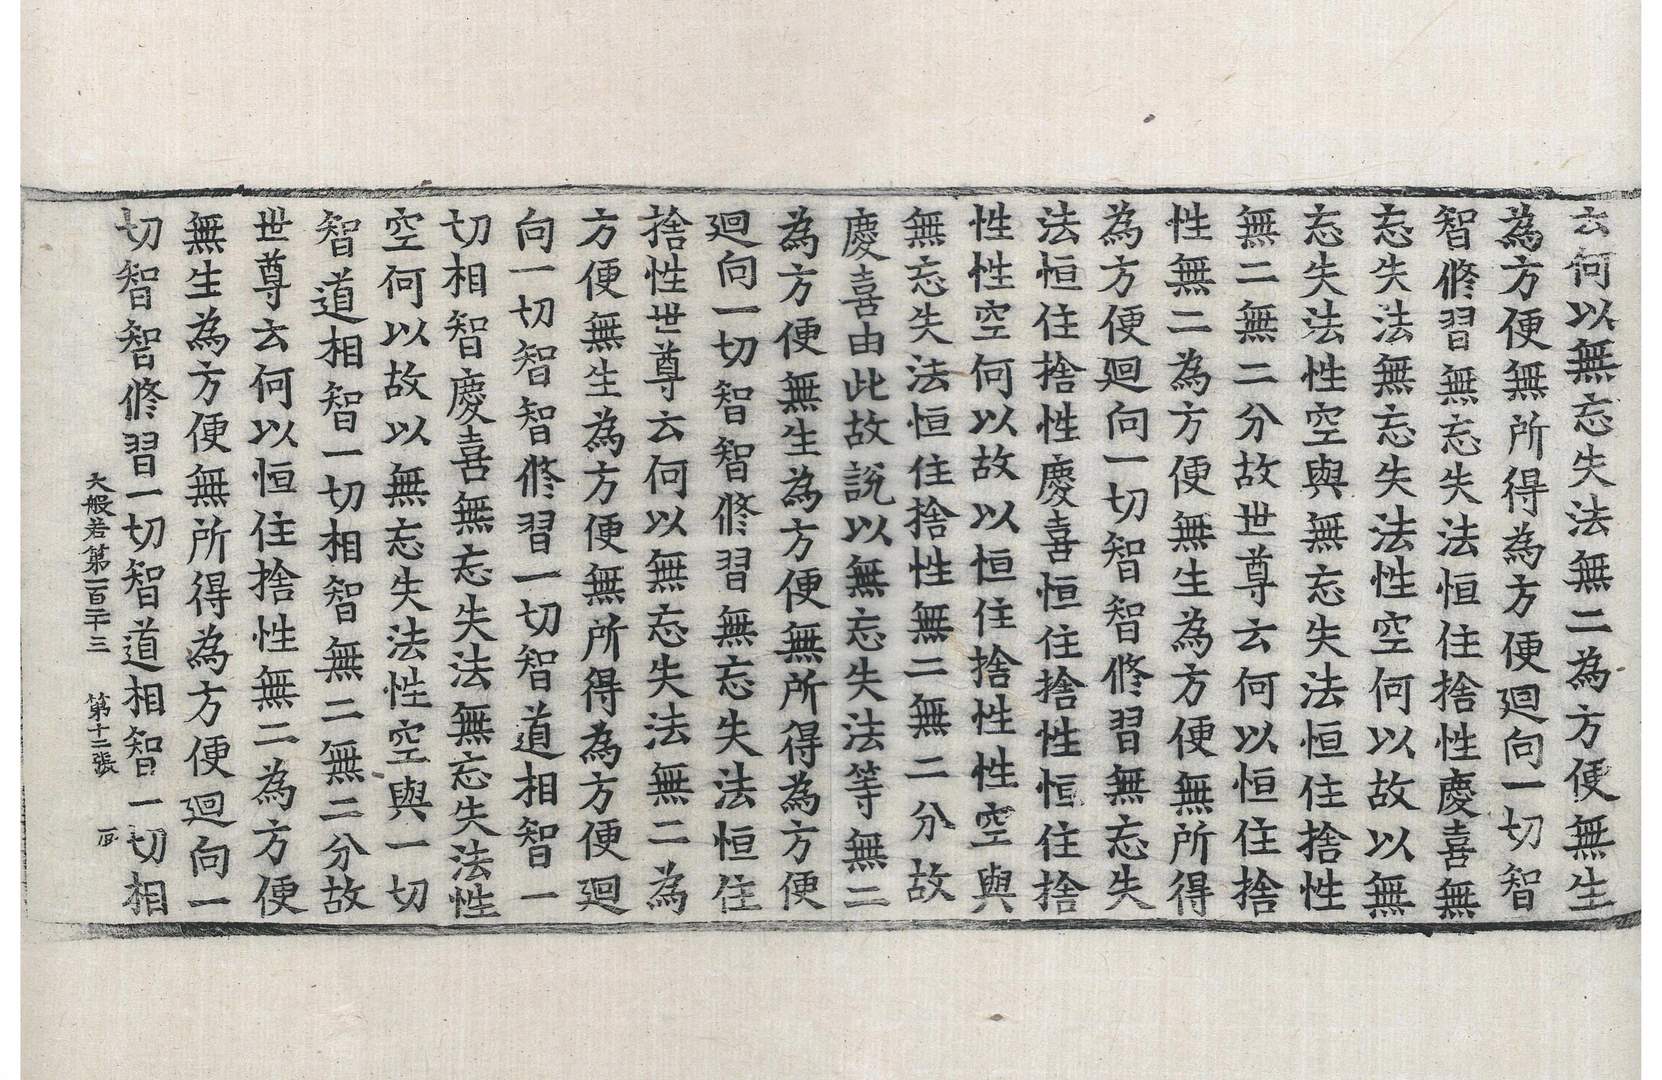 云何以無忘失法無二為方便無生
為方便無所得為方便廻向一切智
智修習無忘失法恒住捨性慶喜無
忘失法無忘失法性空何以故以無
忘失法性空與無忘失法恒住捨性
無二無二分故世尊云何以恒住捨
性無二為方便無生為方便無所得
為方便廻向一切智智修習無忘失
法恒住捨性慶喜恒住捨性恒住捨
性性空何以故以恒住捨性性空與
無忘失法恒住捨性無二無二分故
慶喜由此故說以無忘失法等無二
為方便無生為方便無所得為方便
廻向一切智智修習無忘失法恒住
捨性世尊云何以無忘失法無二為
方便無生為方便無所得為方便廻
向一切智智修習一切智道相智一
切相智慶喜無忘失法無忘失法性
空何以故以無忘失法性空與一切
智道相智一切相智無二無二分故
世尊云何以恒住捨性無二為方便
無生為方便無所得為方便廻向一
切智智修習一切智道相智一切相
大般若第一百二十三 第十二張